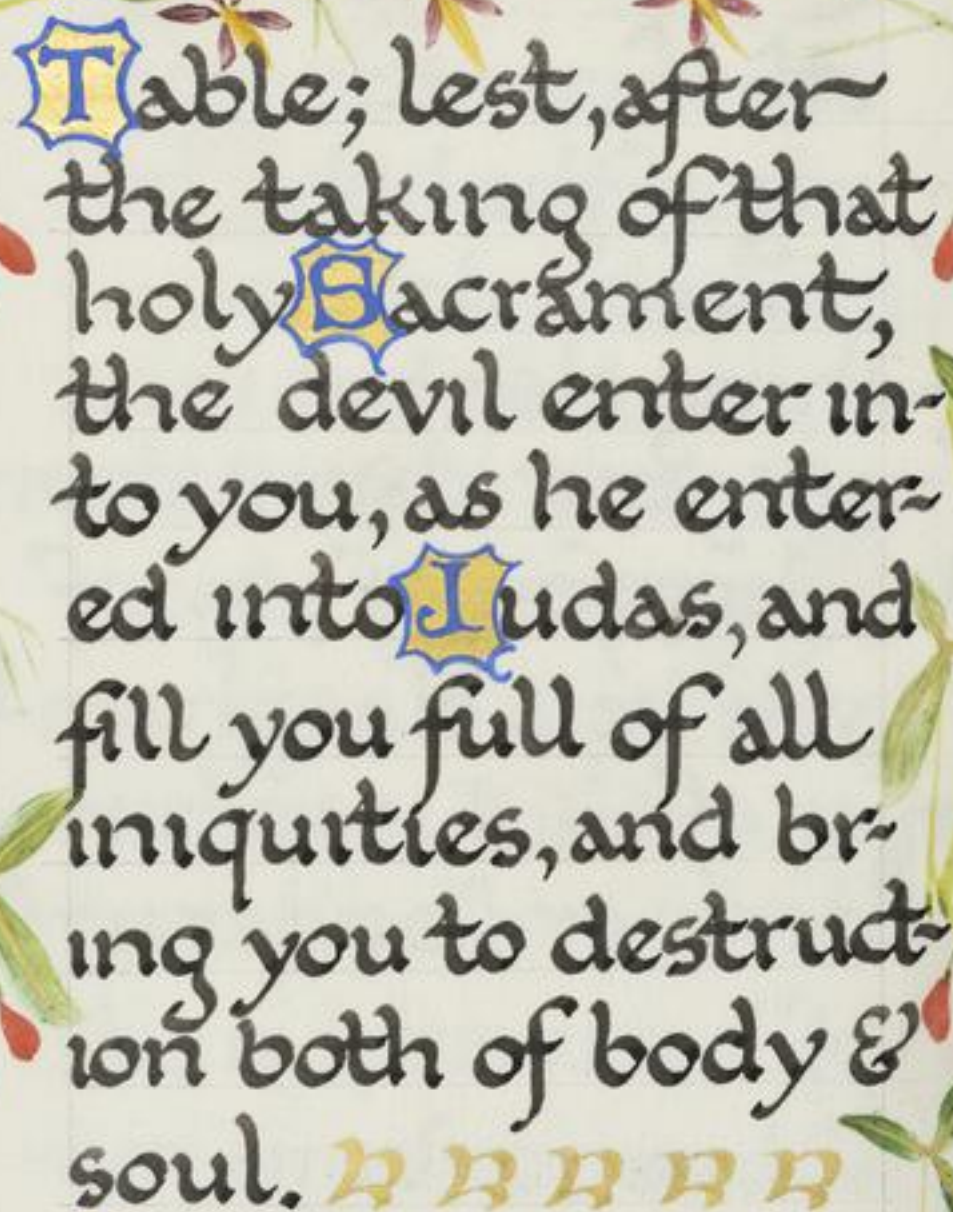 Table; lest, after
the taking of that
holy Sacrament,
the devil enter in-
to you, as he enter-
ed into Judas, and
fill you full of all
iniquities, and br-
ing you to destruct-
ion both of body &
soul.